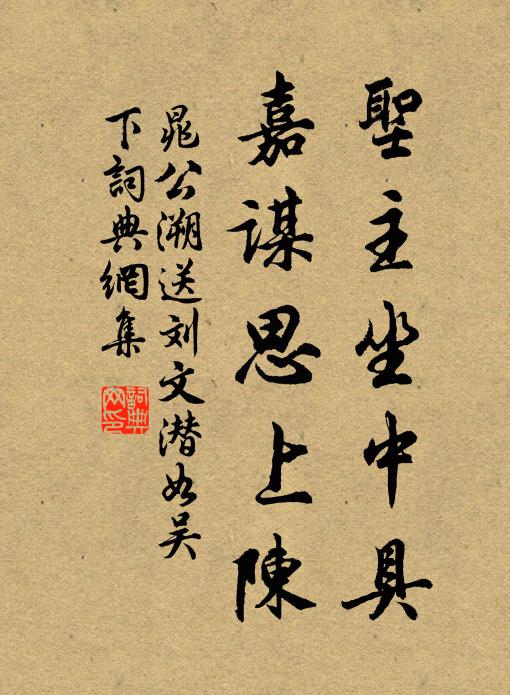 聖主坐中具
嘉謀思上陳
晁公溯送刘文潜如吴
下詞典網集
詞典網印